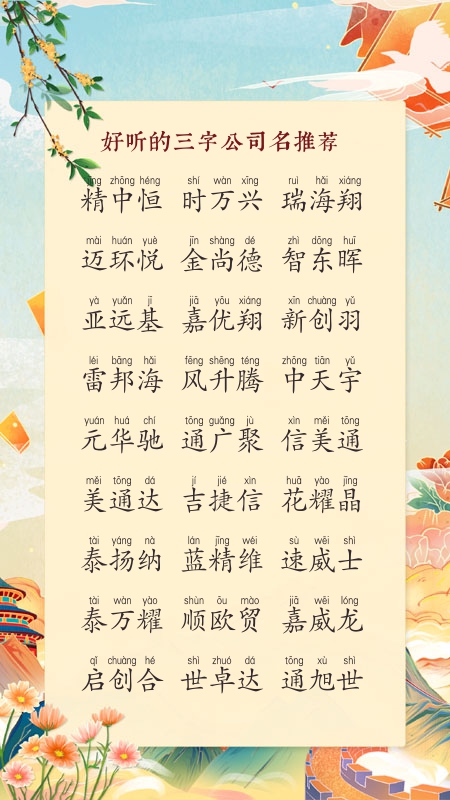 好听的三字公司名推荐
jīng zhōng héng shí wàn xīng ruì hǎi xiáng
精中恒 时万兴 瑞海翔
mài huán yuè jīn shàng dé zhì dōng huī
迈环悦 金尚德 智东晖
yà yuǎn jī jiā yōu xiáng xīn chuàng yǔ
亚远基 嘉优翔 新创羽
léi bāng hǎi fēng shēng téng zhōng tiān yǔ
雷邦海 风升腾 中天宇
yuán huá chí tōng guǎng jù xìn měi tōng
元华驰 通广聚 信美通
měi tōng dá jí jié xìn huā yào jīng
美通达 吉捷信 花耀晶
tài yáng nà lán jīng wéi sù wēi shì
泰扬纳 蓝精维 速威士
tài wàn yào shùn ōu mào jiā wēi lóng
泰万耀 顺欧贸 嘉威龙
qǐ chuàng hé shì zhuó dá tōng xù shì
启创合 世卓达 通旭世